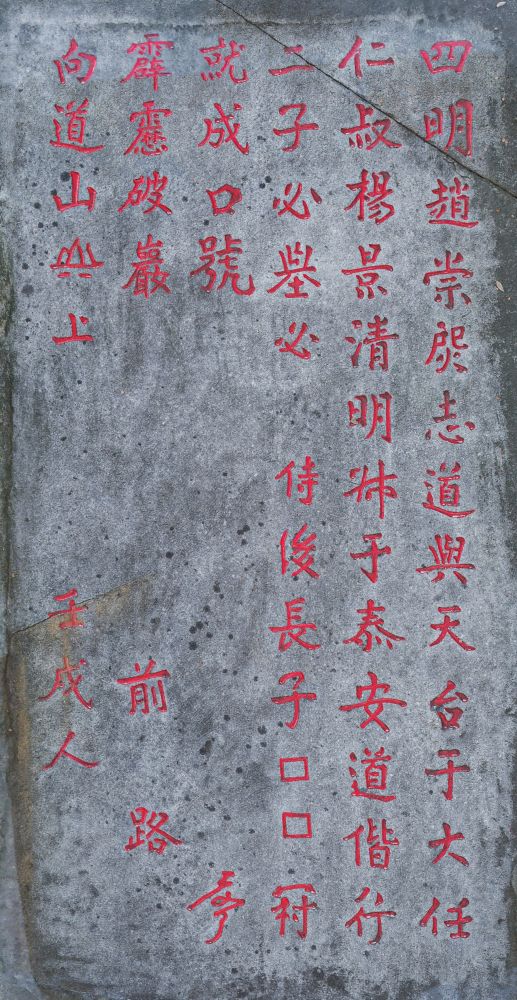 四明趙崇志道與天台于大任
仁叔楊景清明于泰安道偕行
二子必舉必 侍長子□□
就成口號
霹靂破巖 前路
向道山上 壬戌人